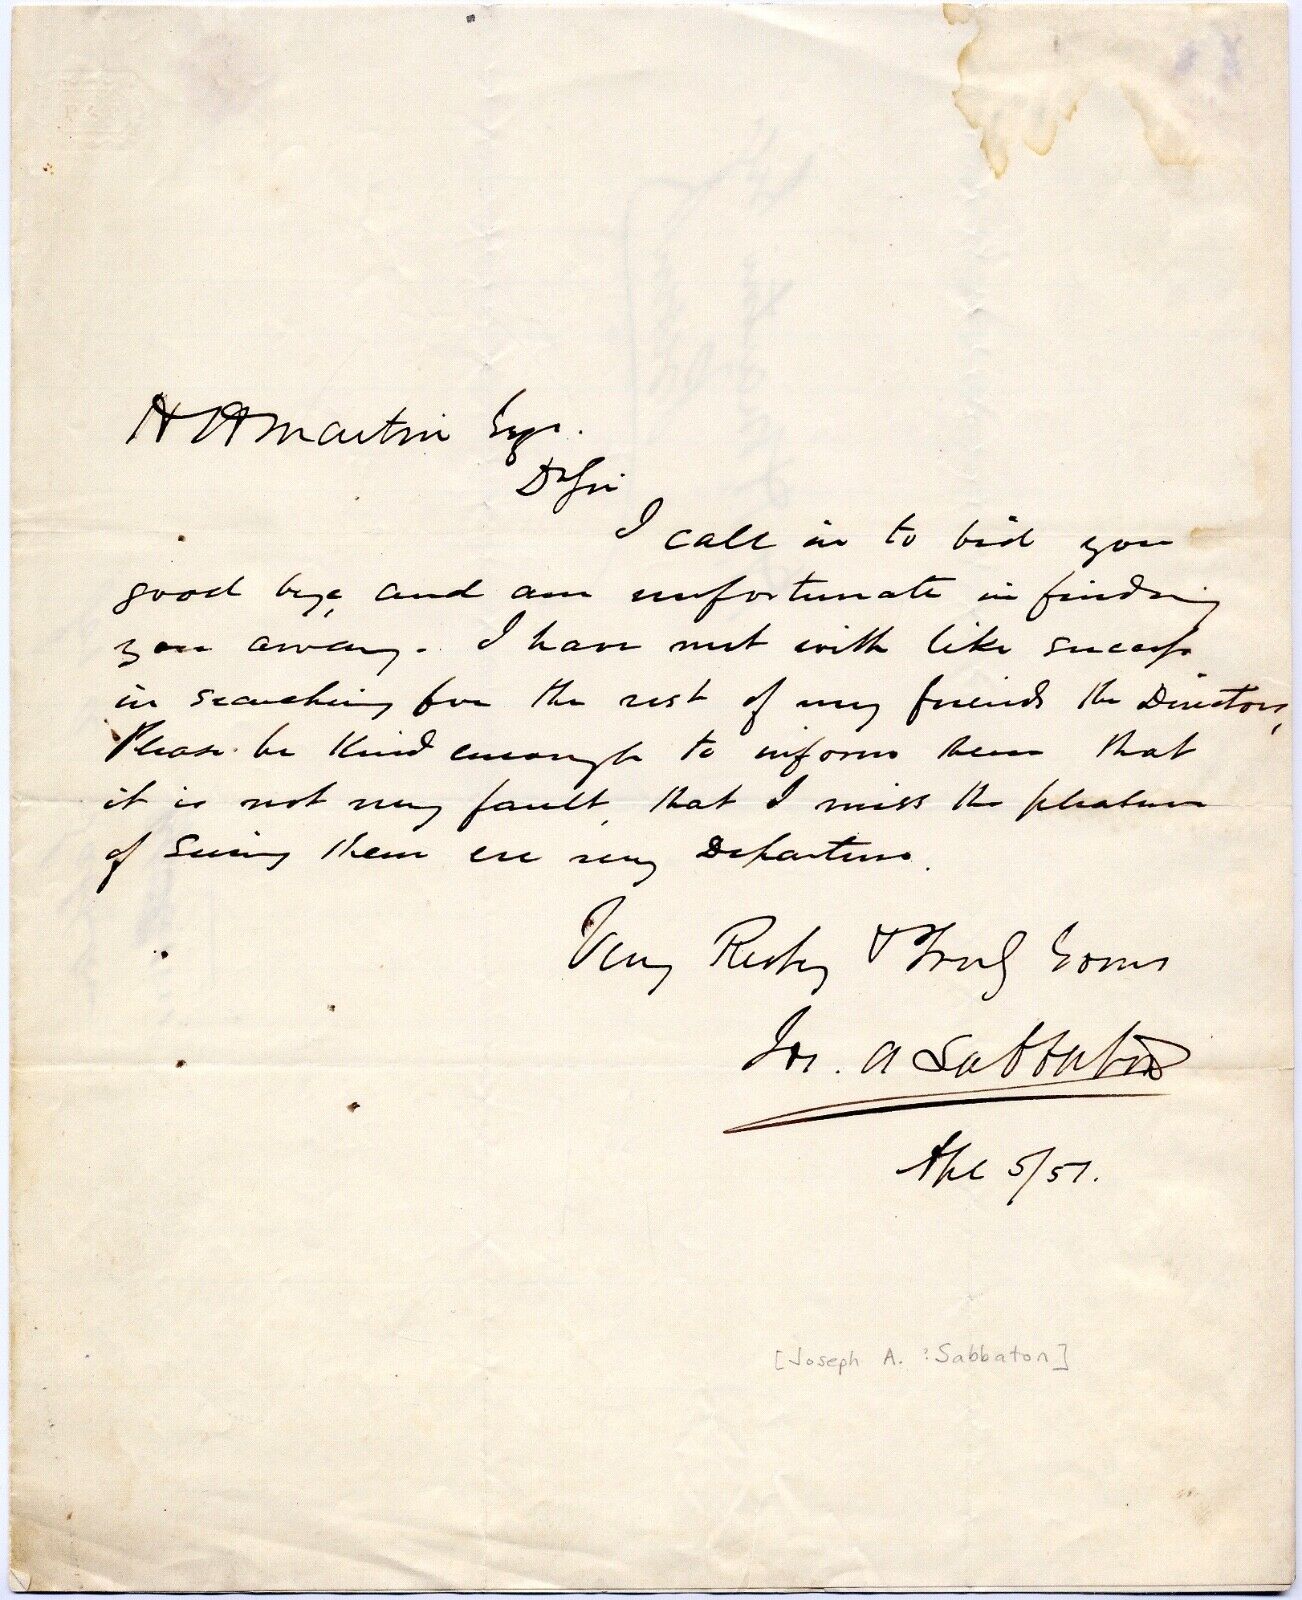 H H Martin Esqr.
Dr Sir
I call in to bid you
good bye, and am unfortunate in finding
you away. I have met with like success
in searching for the rest of my friends the Directors,
Please be kind enough to inform them that
it is not my fault, that I miss the pleasure
of seeing them ere my Departure.
Very Respy & Truly Yours
Jos. A Sabbaton
Apl 5/51.
[Joseph A. ?Sabbaton]